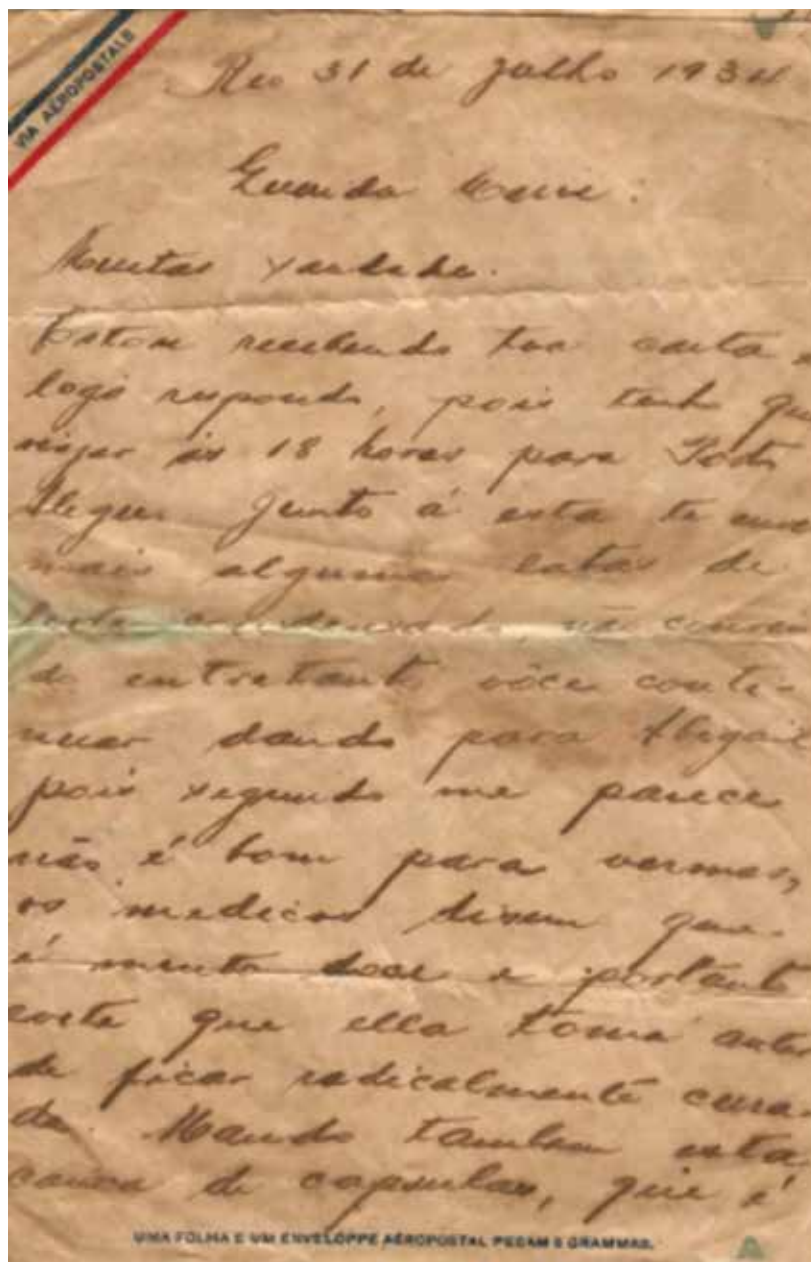 VIA AEROPOSTALE
Rio 31 de Julho 1934
Querida
Muitas saudades.
Estou recebendo tua carta e
logo respondo, pois tenho que
viajar ás 18 horas para Porto
Alegre. Junto á esta te
mais algumas latas de
leite condensado, não
do entretanto vôce conti-
nuar dando para Abigail
pois segundo me parece
não é bom para vermes,
os medicos dizem que
é muito doce e portanto
corte que ella toma antes
de ficar radicalmente cura-
da. Mando tambem esta
caixa de capsulas, que é
UMA FOLHA E UM ENVELOPPE AÉROPOSTAL PEZAM 5 GRAMMAS.